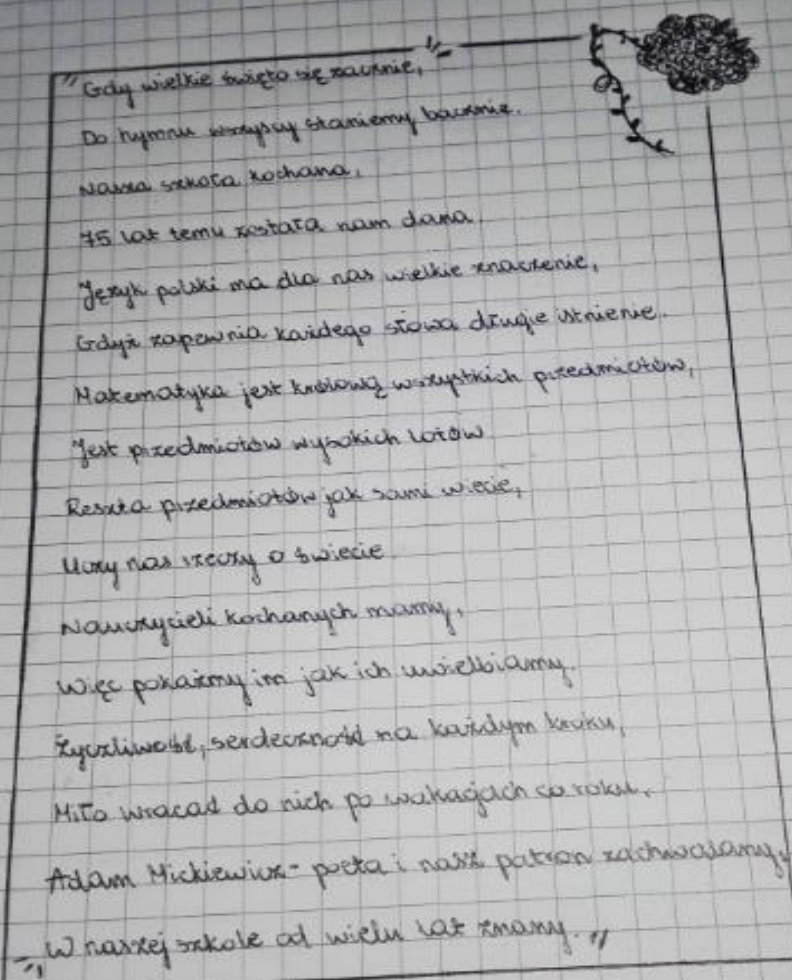 "Gdy wielkie święto się zacznie,
Do hymnu wszyscy staniemy bacznie.
Nasza szkoła kochana,
75 lat temu została nam dana.
Język polski ma dla nas wielkie znaczenie,
Gdyż zapewnia każdego słowa drugie istnienie.
Matematyka jest królową wszystkich przedmiotów,
Jest przedmiotów wysokich lotów.
Reszta przedmiotów jak sami wiecie,
Uczy nas rzeczy o świecie.
Nauczycieli kochanych mamy,
Więc pokażmy im jak ich uwielbiamy.
Życzliwość, serdeczność na każdym kroku,
Miło wracać do nich po wakacjach co roku.
Adam Mickiewicz - poeta i nasz patron zachwalany,
W naszej szkole od wielu lat znany."